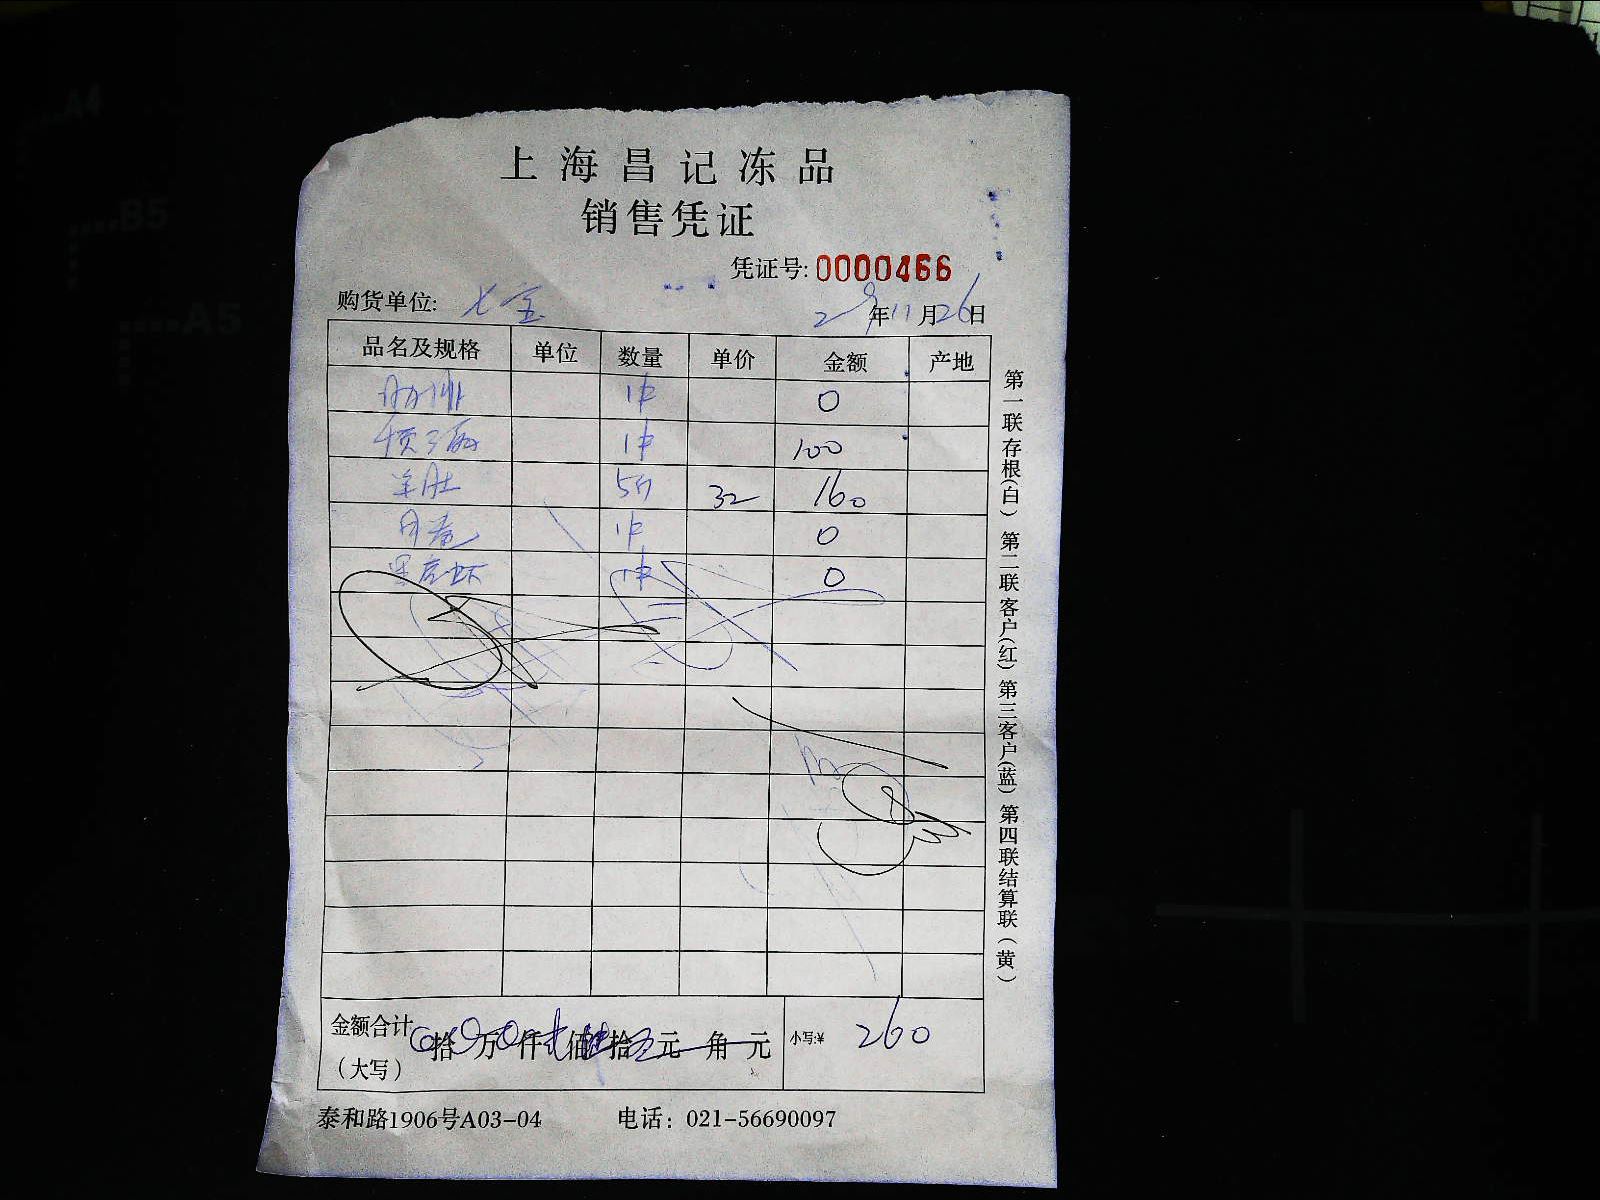 上海昌记冻品
销售凭证
凭证号: 0000466
购货单位: 七宝
年11月26日
品名及规格 单位 数量 单价 金额 产地
1件 0
1件 100
羊肚 5斤 32 160
1件 0
黑虎虾 1件 0
金额合计 拾 万 仟 佰 拾 元 角 元 小写:¥ 260
(大写)
泰和路1906号A03-04 电话: 021-56690097
第一联存根(白) 第二联客户(红) 第三客户(蓝) 第四联结算联(黄)
A4
B5
A5